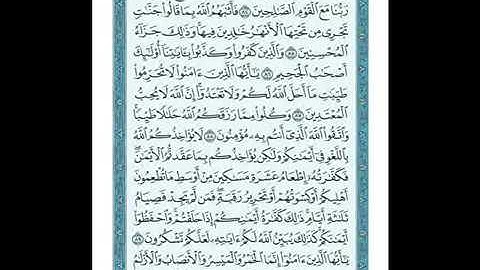 رَبُّنَا مَعَ ٱلْقَوْمِ ٱلصَّٰلِحِينَ ٨٤ فَأَثَٰبَهُمُ ٱللَّهُ بِمَا قَالُوا۟ جَنَّٰتٍ
تَجْرِى مِن تَحْتِهَا ٱلْأَنْهَٰرُ خَٰلِدِينَ فِيهَا ۚ وَذَٰلِكَ جَزَآءُ
ٱلْمُحْسِنِينَ ٨٥ وَٱلَّذِينَ كَفَرُوا۟ وَكَذَّبُوا۟ بِـَٔايَٰتِنَآ أُو۟لَٰٓئِكَ
أَصْحَٰبُ ٱلْجَحِيمِ ٨٦ يَٰٓأَيُّهَا ٱلَّذِينَ ءَامَنُوا۟ لَا تُحَرِّمُوا۟
طَيِّبَٰتِ مَآ أَحَلَّ ٱللَّهُ لَكُمْ وَلَا تَعْتَدُوٓا۟ ۚ إِنَّ ٱللَّهَ لَا يُحِبُّ
ٱلْمُعْتَدِينَ ٨٧ وَكُلُوا۟ مِمَّا رَزَقَكُمُ ٱللَّهُ حَلَٰلًا طَيِّبًا ۚ
وَٱتَّقُوا۟ ٱللَّهَ ٱلَّذِىٓ أَنتُم بِهِۦ مُؤْمِنُونَ ٨٨ لَا يُؤَاخِذُكُمُ ٱللَّهُ
بِٱللَّغْوِ فِىٓ أَيْمَٰنِكُمْ وَلَٰكِن يُؤَاخِذُكُم بِمَا عَقَّدتُّمُ ٱلْأَيْمَٰنَ ۖ
فَكَفَّٰرَتُهُۥٓ إِطْعَامُ عَشَرَةِ مَسَٰكِينَ مِنْ أَوْسَطِ مَا تُطْعِمُونَ
أَهْلِيكُمْ أَوْ كِسْوَتُهُمْ أَوْ تَحْرِيرُ رَقَبَةٍ ۖ فَمَن لَّمْ يَجِدْ فَصِيَامُ
ثَلَٰثَةِ أَيَّامٍ ۚ ذَٰلِكَ كَفَّٰرَةُ أَيْمَٰنِكُمْ إِذَا حَلَفْتُمْ ۚ وَٱحْفَظُوٓا۟
أَيْمَٰنَكُمْ ۚ كَذَٰلِكَ يُبَيِّنُ ٱللَّهُ لَكُمْ ءَايَٰتِهِۦ لَعَلَّكُمْ تَشْكُرُونَ ٨٩
يَٰٓأَيُّهَا ٱلَّذِينَ ءَامَنُوٓا۟ إِنَّمَا ٱلْخَمْرُ وَٱلْمَيْسِرُ وَٱلْأَنصَابُ وَٱلْأَزْلَٰمُ